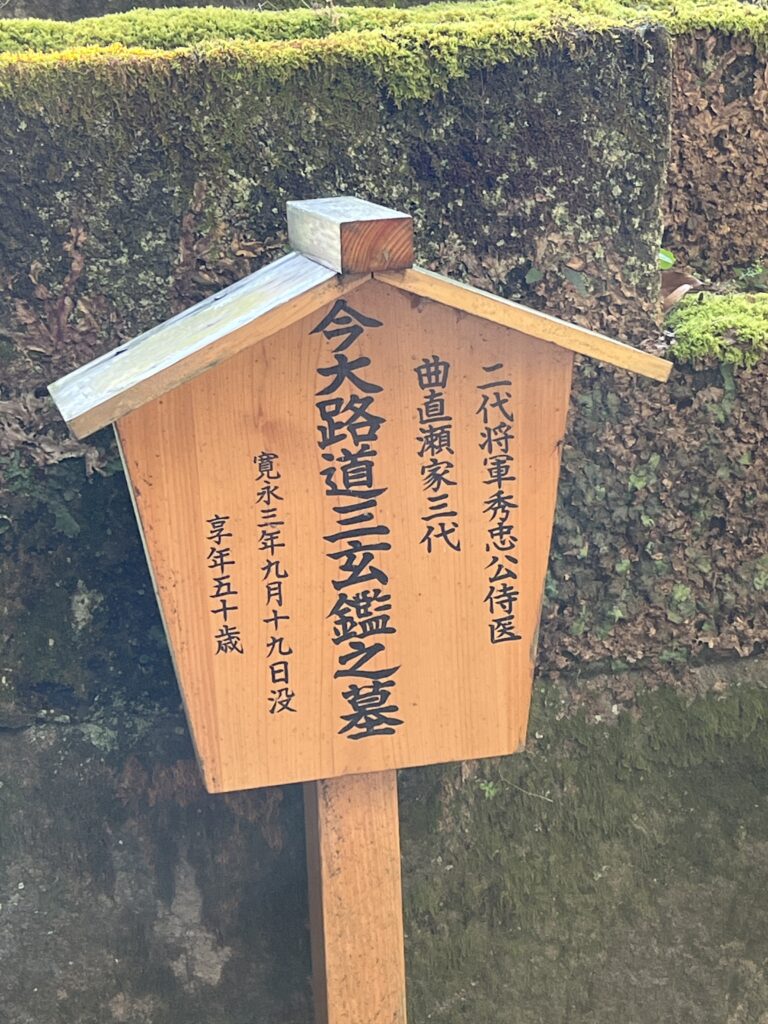 二代将軍秀忠公侍医
曲直瀬家三代
今大路道三玄鑑之墓
寛永三年九月十九日没
享年五十歳